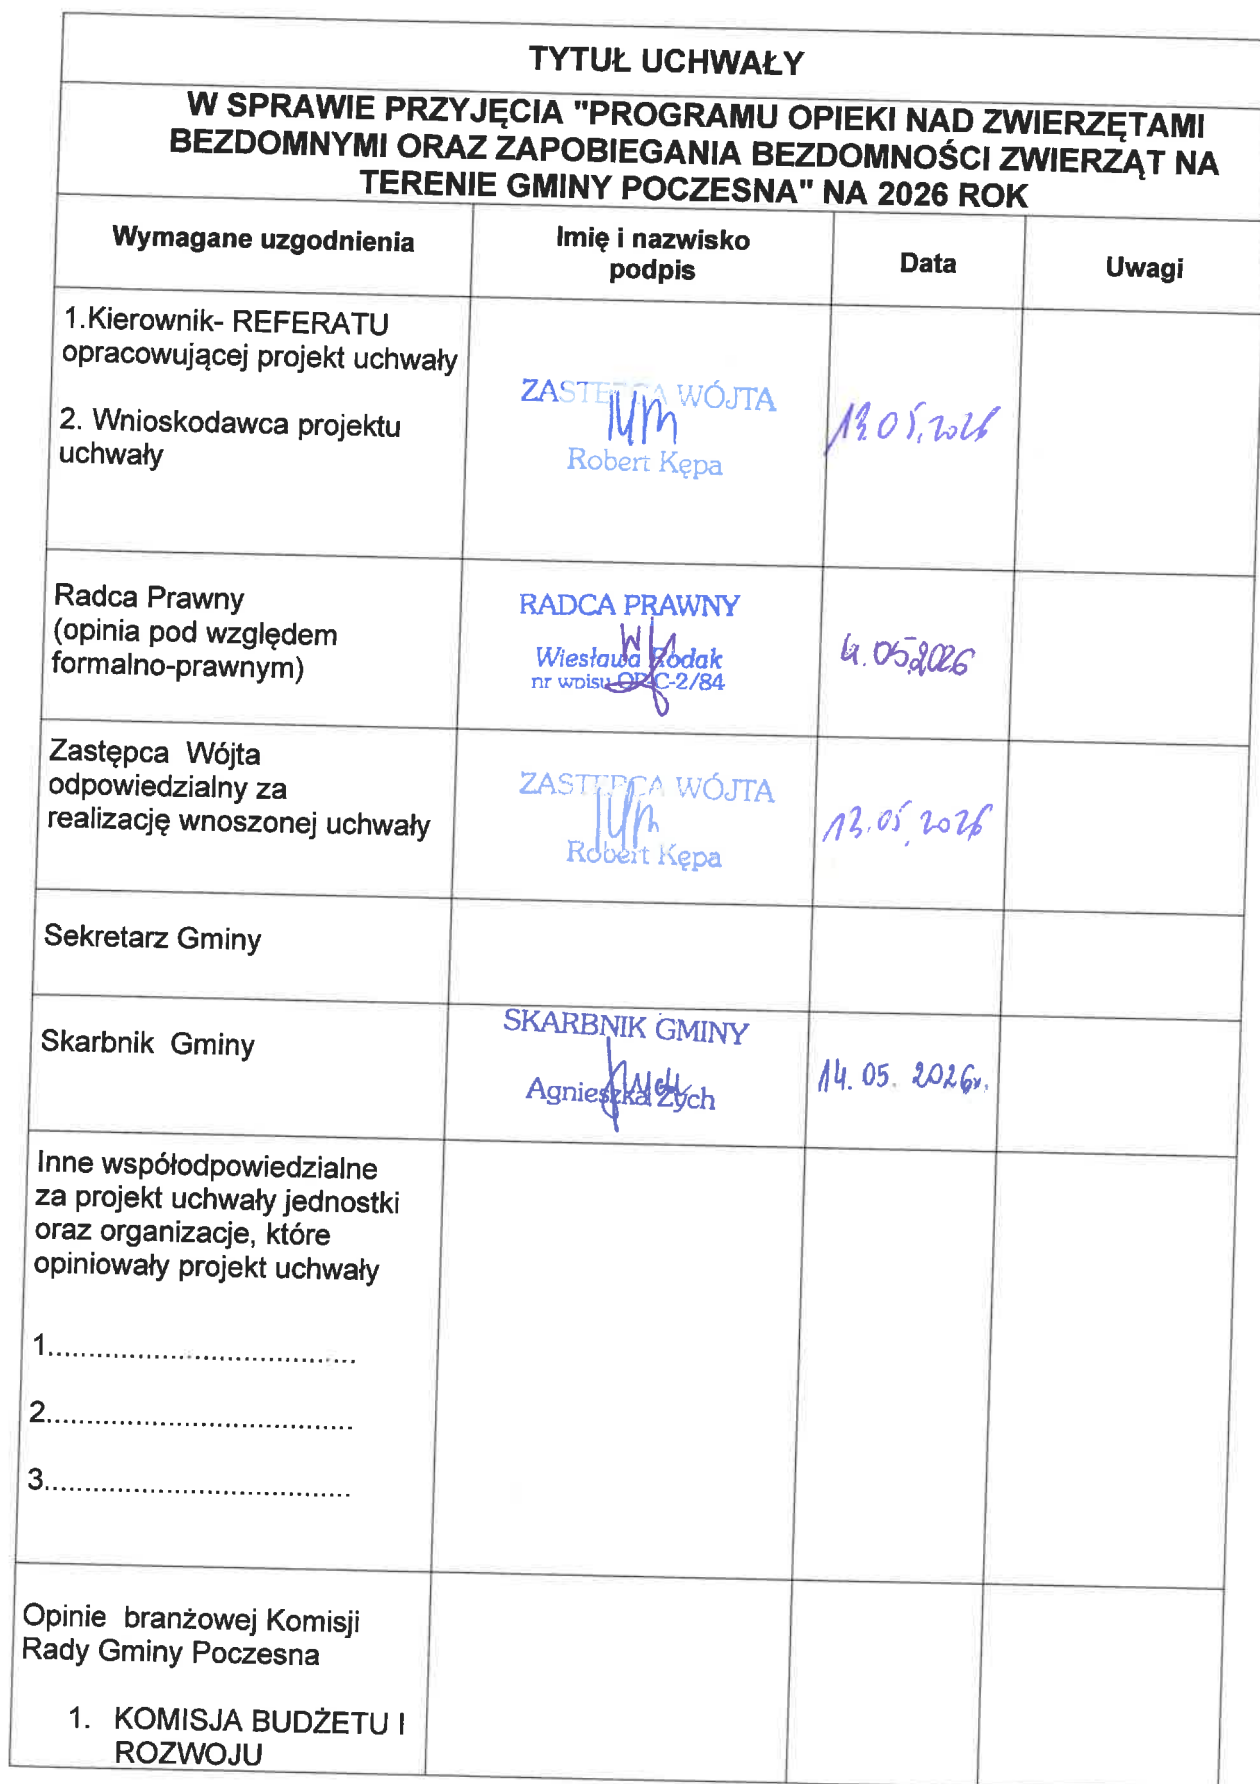 TYTUŁ UCHWAŁY
W SPRAWIE PRZYJĘCIA "PROGRAMU OPIEKI NAD ZWIERZĘTAMI
BEZDOMNYMI ORAZ ZAPOBIEGANIA BEZDOMNOŚCI ZWIERZĄT NA
TERENIE GMINY POCZESNA" NA 2026 ROK
Wymagane uzgodnienia
Imię i nazwisko
podpis
Data
Uwagi
1.Kierownik- REFERATU
opracowującej projekt uchwały
2. Wnioskodawca projektu
uchwały
ZASTĘPCA WÓJTA
Robert Kępa
13.05.2026
Radca Prawny
(opinia pod względem
formalno-prawnym)
RADCA PRAWNY
Wiesława Rodak
nr wpisu OP-C-2/84
05.2026
Zastępca Wójta
odpowiedzialny za
realizację wnoszonej uchwały
ZASTĘPCA WÓJTA
Robert Kępa
13.05.2026
Sekretarz Gminy
Skarbnik Gminy
SKARBNIK GMINY
Agnieszka Zych
14.05.2026r.
Inne współodpowiedzialne
za projekt uchwały jednostki
oraz organizacje, które
opiniowały projekt uchwały
1......................................
2......................................
3......................................
Opinie branżowej Komisji
Rady Gminy Poczesna
1. KOMISJA BUDŻETU I
ROZWOJU